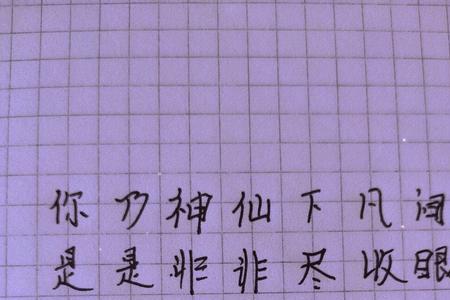 你乃神仙下凡间
是是非非尽收眼